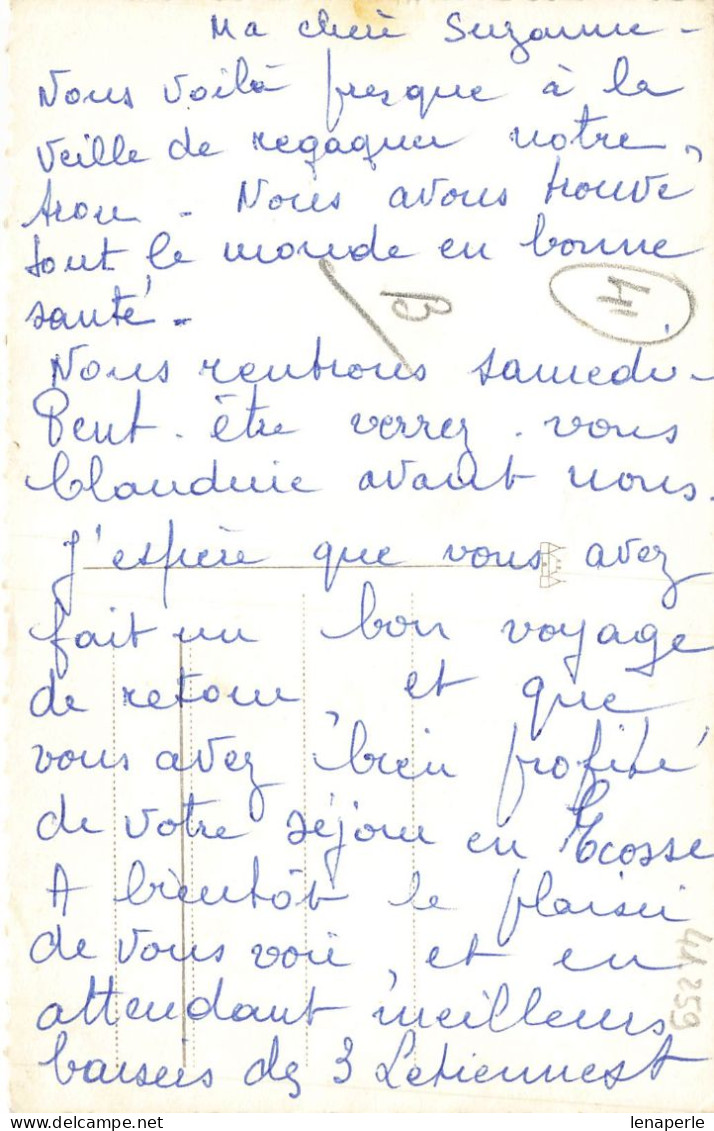 Ma chère Suzanne -
Nous voilà presque à la
veille de regagner notre
trou - Nous avons trouvé
tout le monde en bonne
santé -
Nous rentrons samedi -
Peut-être verrez-vous
Claudine avant nous.
J'espère que vous avez
fait un bon voyage
de retour, et que
vous avez bien profité
de votre séjour en Ecosse
A bientôt le plaisir
de vous voir, et en
attendant meilleurs
baisers des 3
41259
lenaperle